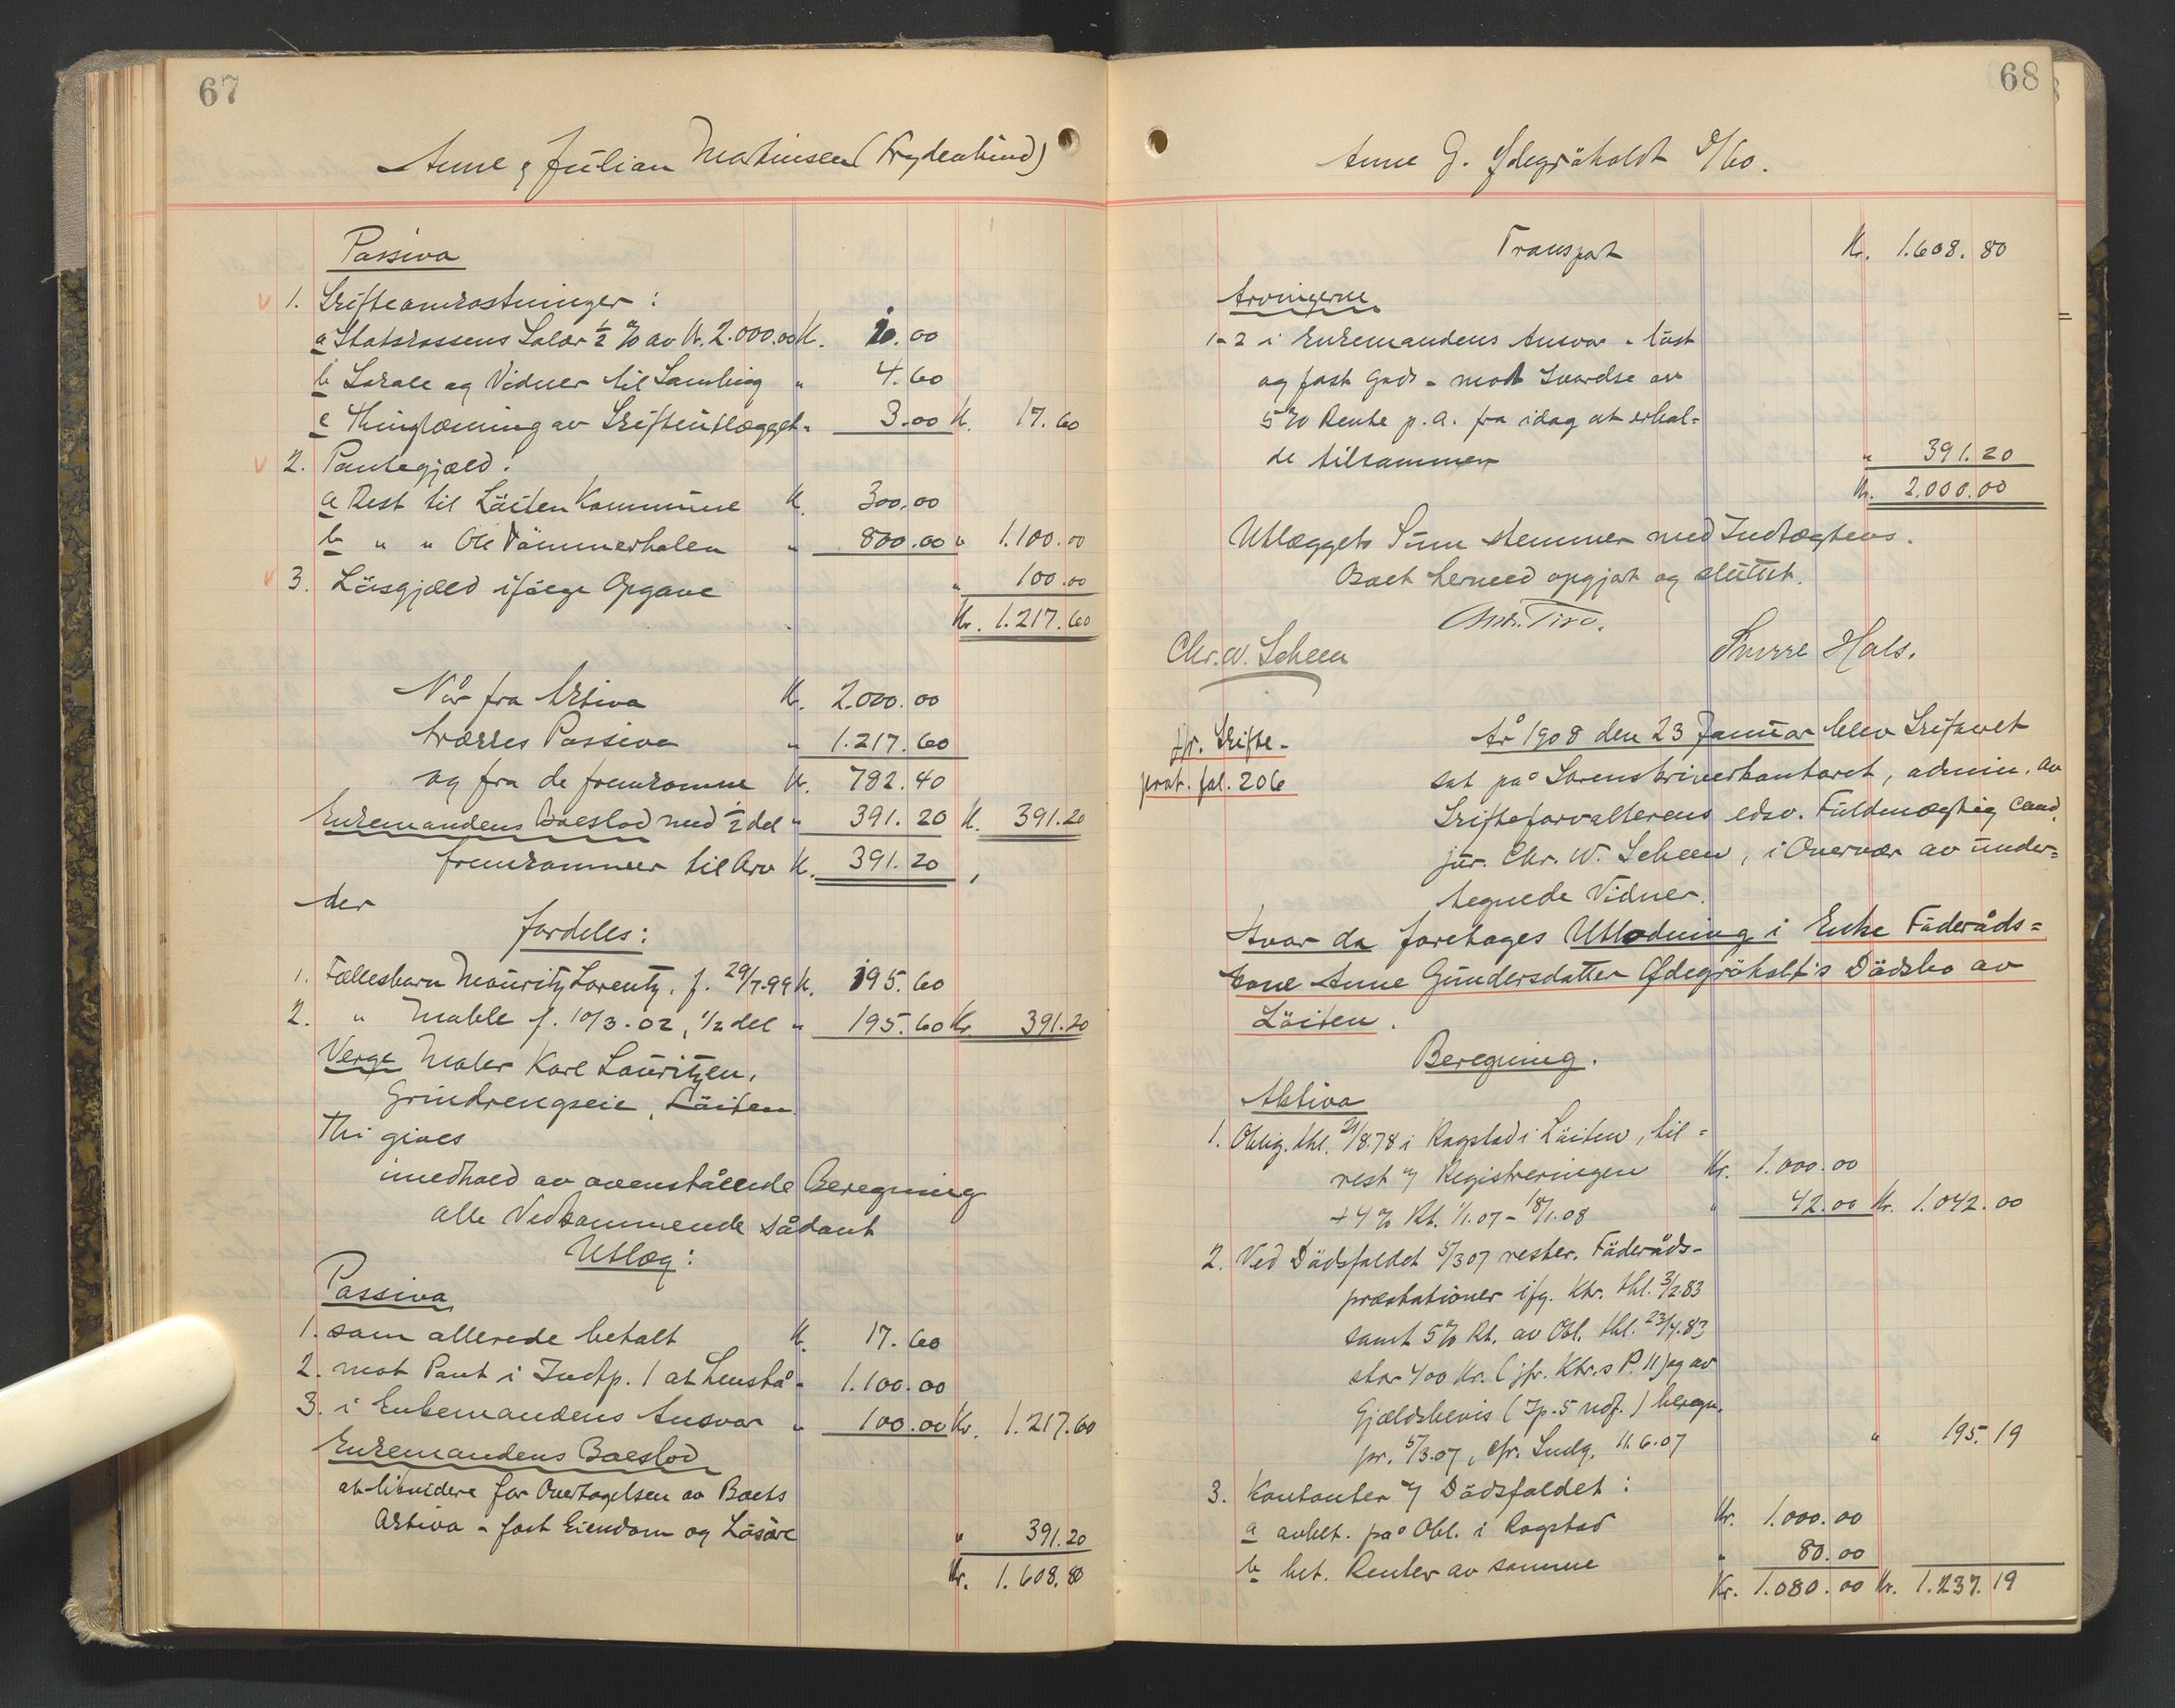 67
Anne & Julian Martinsen (Frydenlund)
Passiva
1. Skifteomkostninger:
a Statskassens Salær ½ % av Kr. 2.000.00 K. 10.00
b Lokale og Vidner til Samling " 4.60
c Thinglæsning av Skifteutlægget " 3.00 K. 17.60
2. Pantegjæld:
a Rest til Löiten Kommune K. 300.00
b " " Ole Tömmerholen " 800.00 " 1.100.00
3. Lösgjæld ifölge Opgave " 100.00
Kr. 1.217.60
Når fra Aktiva K. 2.000.00
trækkes Passiva " 1.217.60
og fra de fremkomne K. 782.40
Enkemandens Boeslod med ½ del " 391.20 K. 391.20
fremkommer til Arv K. 391.20,
der
fordeles:
1. Fællesbarn Mouritz Lorentz, f. 29/7.99 K. 195.60
2. " Mahle f. 10/3-02, 1/2 del " 195.60 Kr. 391.20
Verge Maler Karl Lauritzen,
Grindrengseie, Löiten.
Thi gives
imedhold av ovenstående Beregning
alle Vedkommende sådant
Utlæg:
Passiva
1. som allerede betalt K. 17.60
2. mot Pant i Indtp. 1 at henstå " 1.100.00
3. i Enkemandens Ansvar " 100.00 Kr. 1.217.60
Enkemandens Boeslod
at likvidere for Overtagelsen av Boets
Aktiva - fast Eiendom og Lösöre " 391.20
Kr. 1.608.80
68
Anne G. Ödegröholdt D/bo.
Transport Kr. 1.608.80
Arvingerne
1-2 i Enkemandens Ansvar - löst
og fast Gods - mot Svarelse av
5 % Rente p. a. fra idag at erhol=
de tilsammen " 391.20
Kr. 2.000.00
Utlæggets Sum stemmer med Indtægtens.
Boet hermed opgjort og sluttet.
Chr. W. Scheen
Snorre Hals.
jfr. Skifte-
prot. fol. 206
År 1908 den 23 Januar blev Skifteret
sat på Sorenskriverkontoret, admin. av
Skifteforvalterens edsv. Fuldmægtig cand.
jur. Chr. W. Scheen, i Overvær av under=
tegnede Vidner.
Hvor da foretoges Utlodning i Enke Föderåds=
kone Anne Gundersdatter Ödegröholt's Dödsbo av
Löiten.
Beregning.
Aktiva
1. Oblig. thl. 21/8.78 i Rogstad i Löiten, til=
rest v/ Registreringen Kr. 1.000.00
+ 4 % Rt. 1/1.07 - 18/1.08 " 42.00 Kr. 1.042.00
2. Ved Dödsfaldet 5/3 07 rester. Föderåds-
præstationer ifg. Ktr. thl. 3/2 83
samt 5 % Rt. av Obl. thl. 23/4.83
stor 400 Kr. (jfr. Ktr.s P. 11) og av
Gjældsbevis (Ip. 5 ndf.) beregn.
pr. 5/3.07, cfr. Smlg. 11.6.07 " 195.19
3. Kontanter v/ Dödsfaldet:
a avbet. på Obl. i Rogstad Kr. 1.000.00
b bet. Renter av samme " 80.00
Kr. 1.080.00 Kr. 1.237.19